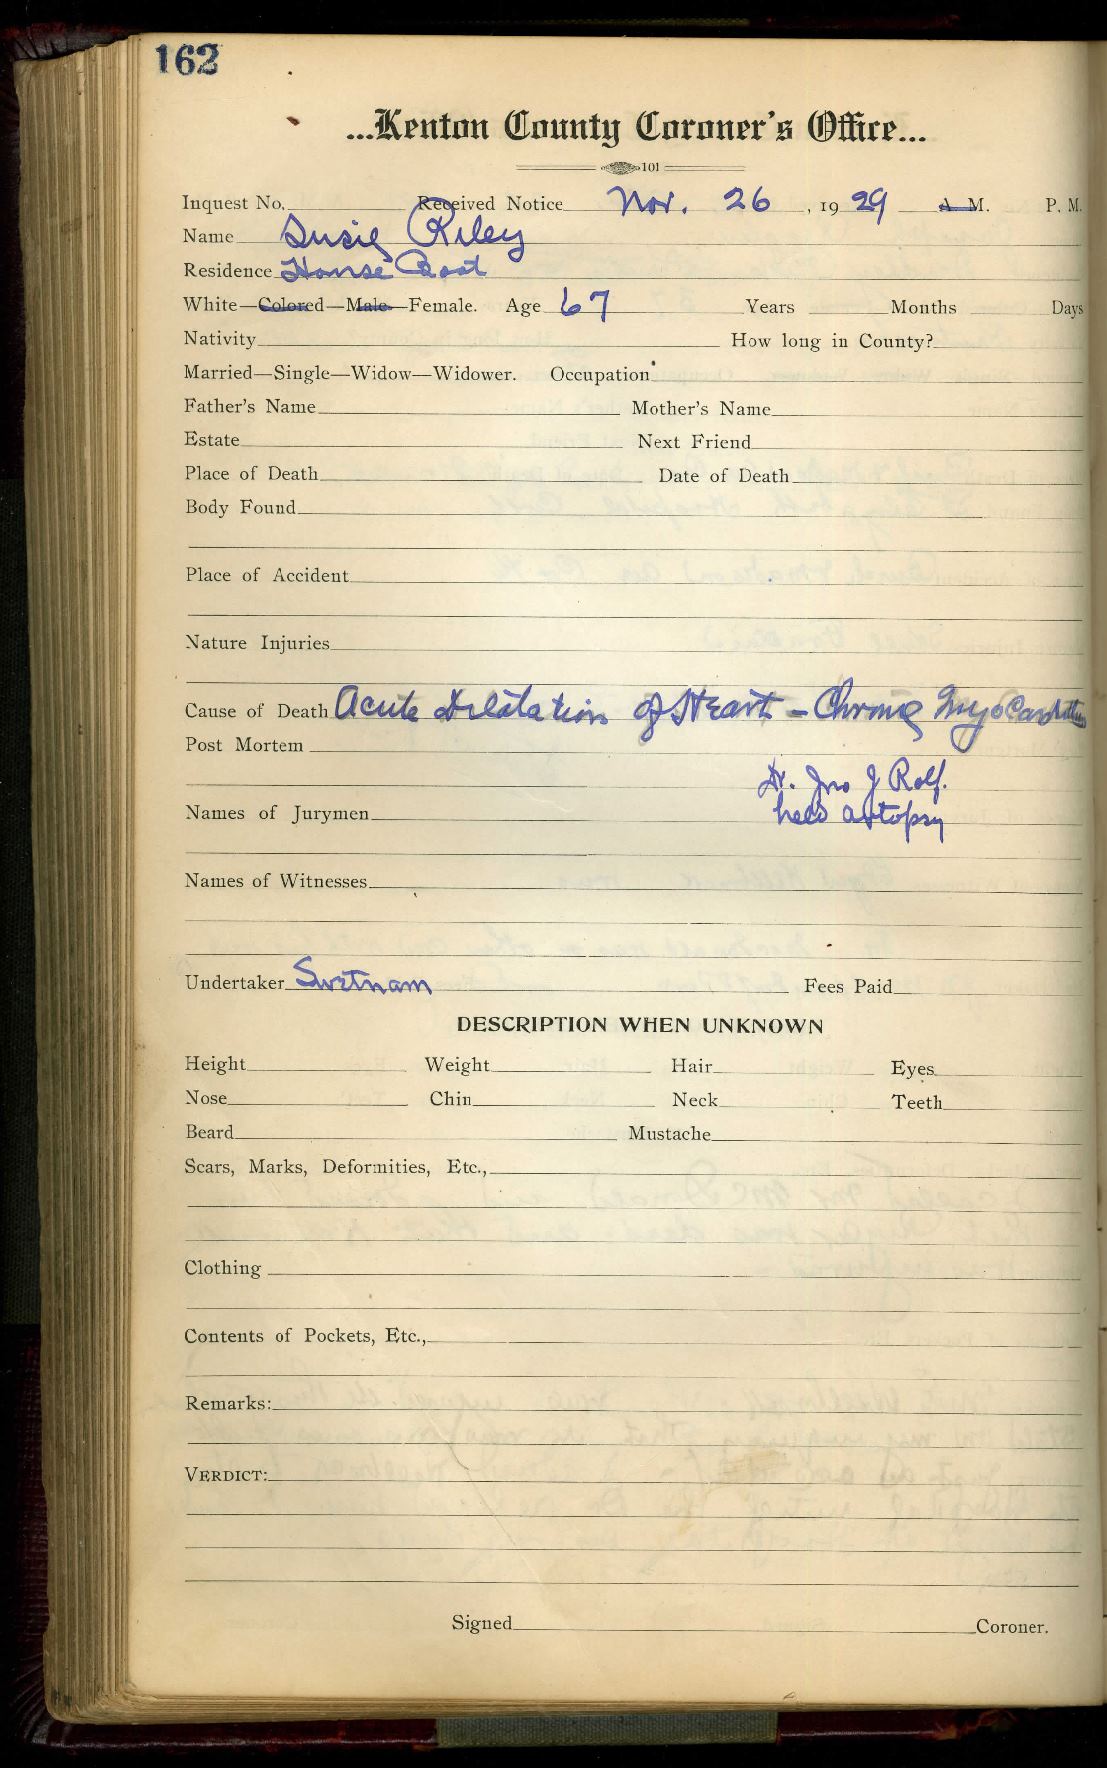 162
...Kenton County Coroner's Office...
101
Inquest No. Received Notice Nov. 26, 1929 A. M. P. M.
Name Susie Riley
Residence House Boat
White—Colored—Male—Female. Age 67 Years Months Days
Nativity How long in County?
Married—Single—Widow—Widower. Occupation
Father's Name Mother's Name
Estate Next Friend
Place of Death Date of Death
Body Found
Place of Accident
Nature Injuries
Cause of Death Acute dilatation of Heart - Chronic Myocarditis
Post Mortem
Dr. Jno J Rolf.
held autopsy
Names of Jurymen
Names of Witnesses
Undertaker Swetnam Fees Paid
DESCRIPTION WHEN UNKNOWN
Height Weight Hair Eyes
Nose Chin Neck Teeth
Beard Mustache
Scars, Marks, Deformities, Etc.,
Clothing
Contents of Pockets, Etc.,
Remarks:
VERDICT:
Signed Coroner.